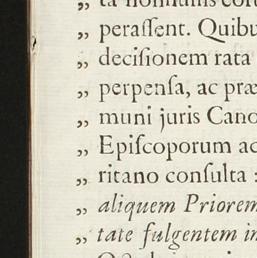 „ ta nonnullis
„ peraſſent. Quibu
„ deciſionem rata
„ perpenſa, ac præ
„ muni juris Cano
„ Epiſcoporum ac
„ ritano conſulta :
„ aliquem Priorem
„ tate fulgentem in